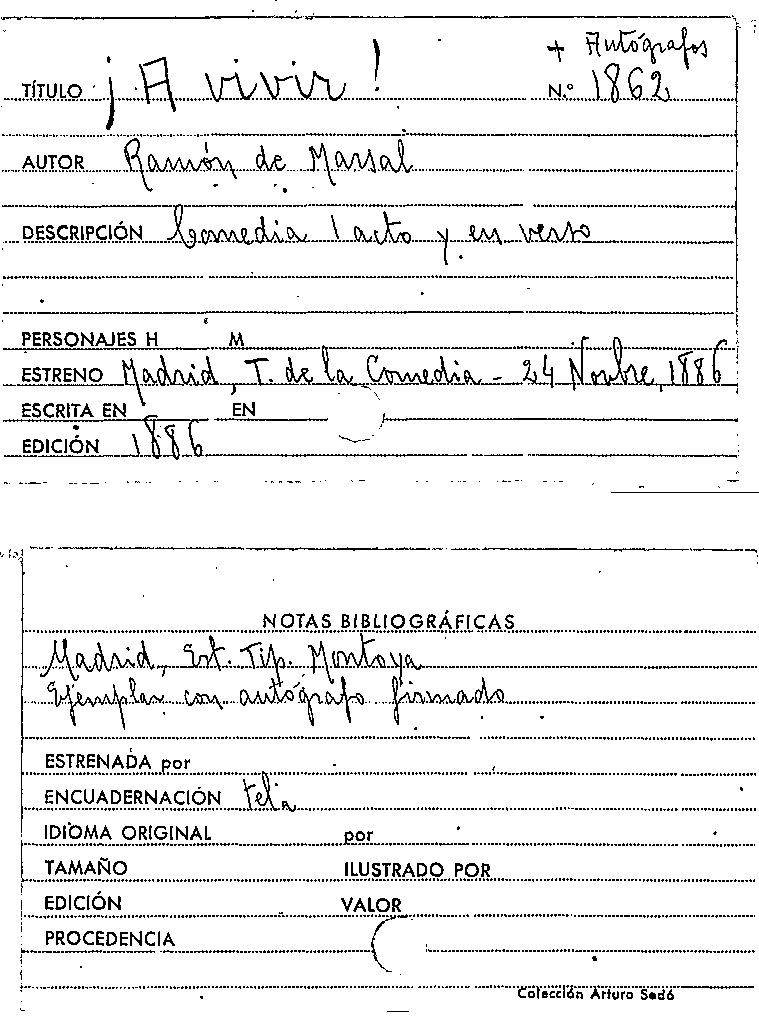 + Autógrafos
TÍTULO ¡A vivir! N.º 1862
AUTOR Ramón de Marsal
DESCRIPCIÓN Comedia 1 acto y en verso
PERSONAJES H M
ESTRENO Madrid, T. de la Comedia - 24 Novbre, 1886
ESCRITA EN EN
EDICIÓN 1886
NOTAS BIBLIOGRÁFICAS
Madrid, Est. Tip. Montoya
Ejemplar con autógrafo firmado
ESTRENADA por
ENCUADERNACIÓN tela
IDIOMA ORIGINAL por
TAMAÑO ILUSTRADO POR
EDICIÓN VALOR
PROCEDENCIA
Colección Arturo Sedó